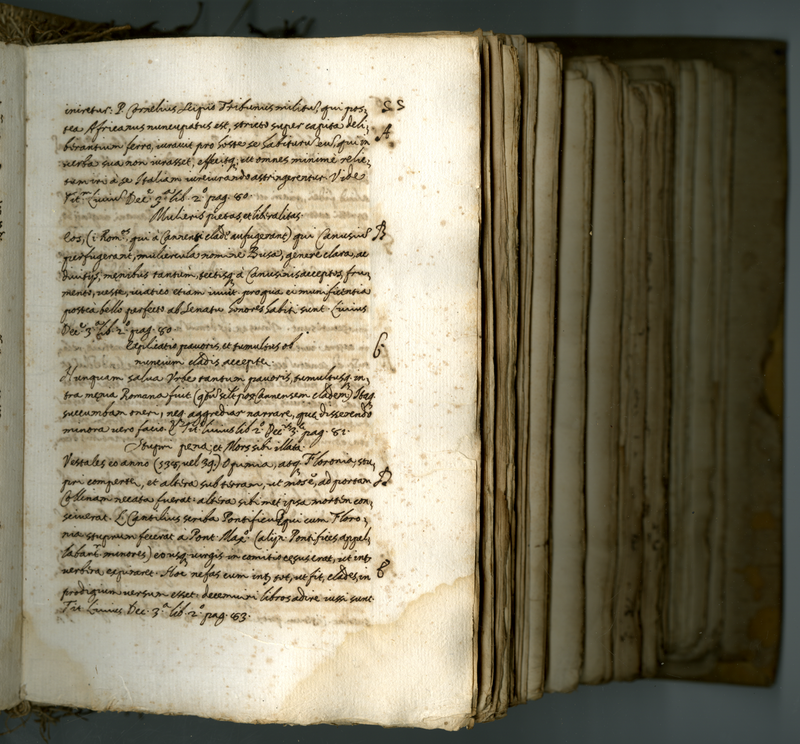 iniretur: P. Cornelius Scipio Tribunus militu), qui pos,
tea Africanus nuncupatus est, stricto super capita deli,
berantium ferro, iuravit pro hoste se habituru eu), qui in
verba sua non iurasset, effecitq, ut omnes minimè relic,
turum à se Italiam iureiurando astringerentur. Vide
Tit. Liviu) Dec. 3. lib. 2.º pag. 80.
Mulieris pietas, et liberalitas.
Eos, (i Rom. qui à Cannensi clade aufugerant) qui Canusiu)
perfugerant, muliercula nomine Busa, genere clara, ac
divitijs, menibus tantum, tectisq à Canusinis acceptos, fru,
mento, veste, viatico etiam iuvit pro qua ei munificentia
postea bello perfecto ab Senatu honores habiti sunt. Livius
Dec. 3. lib. 2.º pag. 80.
Explicatio pavoris, et tumultus ob
nuncium cladis acceptę.
Nunquam salva Urbe tantum pavoris, tumultusq. in,
tra męnia Romana fuit (post Cannensem cladem) Itaq
succumbam oneri, neq. aggrediar narrare, quę disserendo
minora vero facio. Tit. Livius lib. 2.º Dec. 3. pag. 81.
Stupri pena, et Mors sibi illata.
Vestales eo anno (538, vel 39.) Opimia, atq. Floronia, stu,
pri compertę, et altera sub terram, ut mos è, ad portam
Collinam necata fuerat: altera sibimet ipsa mortem con,
sciverat. L. Cantilius scriba Pontificiu) qui cum Floro,
nia stuprum fecerat a Pont. Max. (alijs Pontifices appel,
labant minores) eo usq. virgis in comitio cęsus erat, ut int.
verbera, expiraret. Hoc nefas cum int. tot, ut fit, clades, in
prodigium versum esset. decemviri libros adire iussi sunt.
Tit. Livius Dec. 3.ª lib. 2.º pag. 83.
SS
A
B
C
D
E